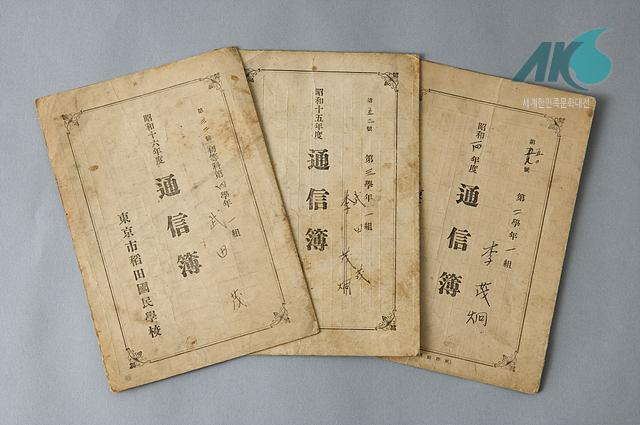 AK
세계한민족문화대전
昭和十六年度
初等科第四學年
通信簿
武田茂
東京市稻田國民學校
昭和十五年度
第三學年一組
通信簿
武田茂
李茂炯
昭和一四年度
第二學年一組
通信簿
李茂炯